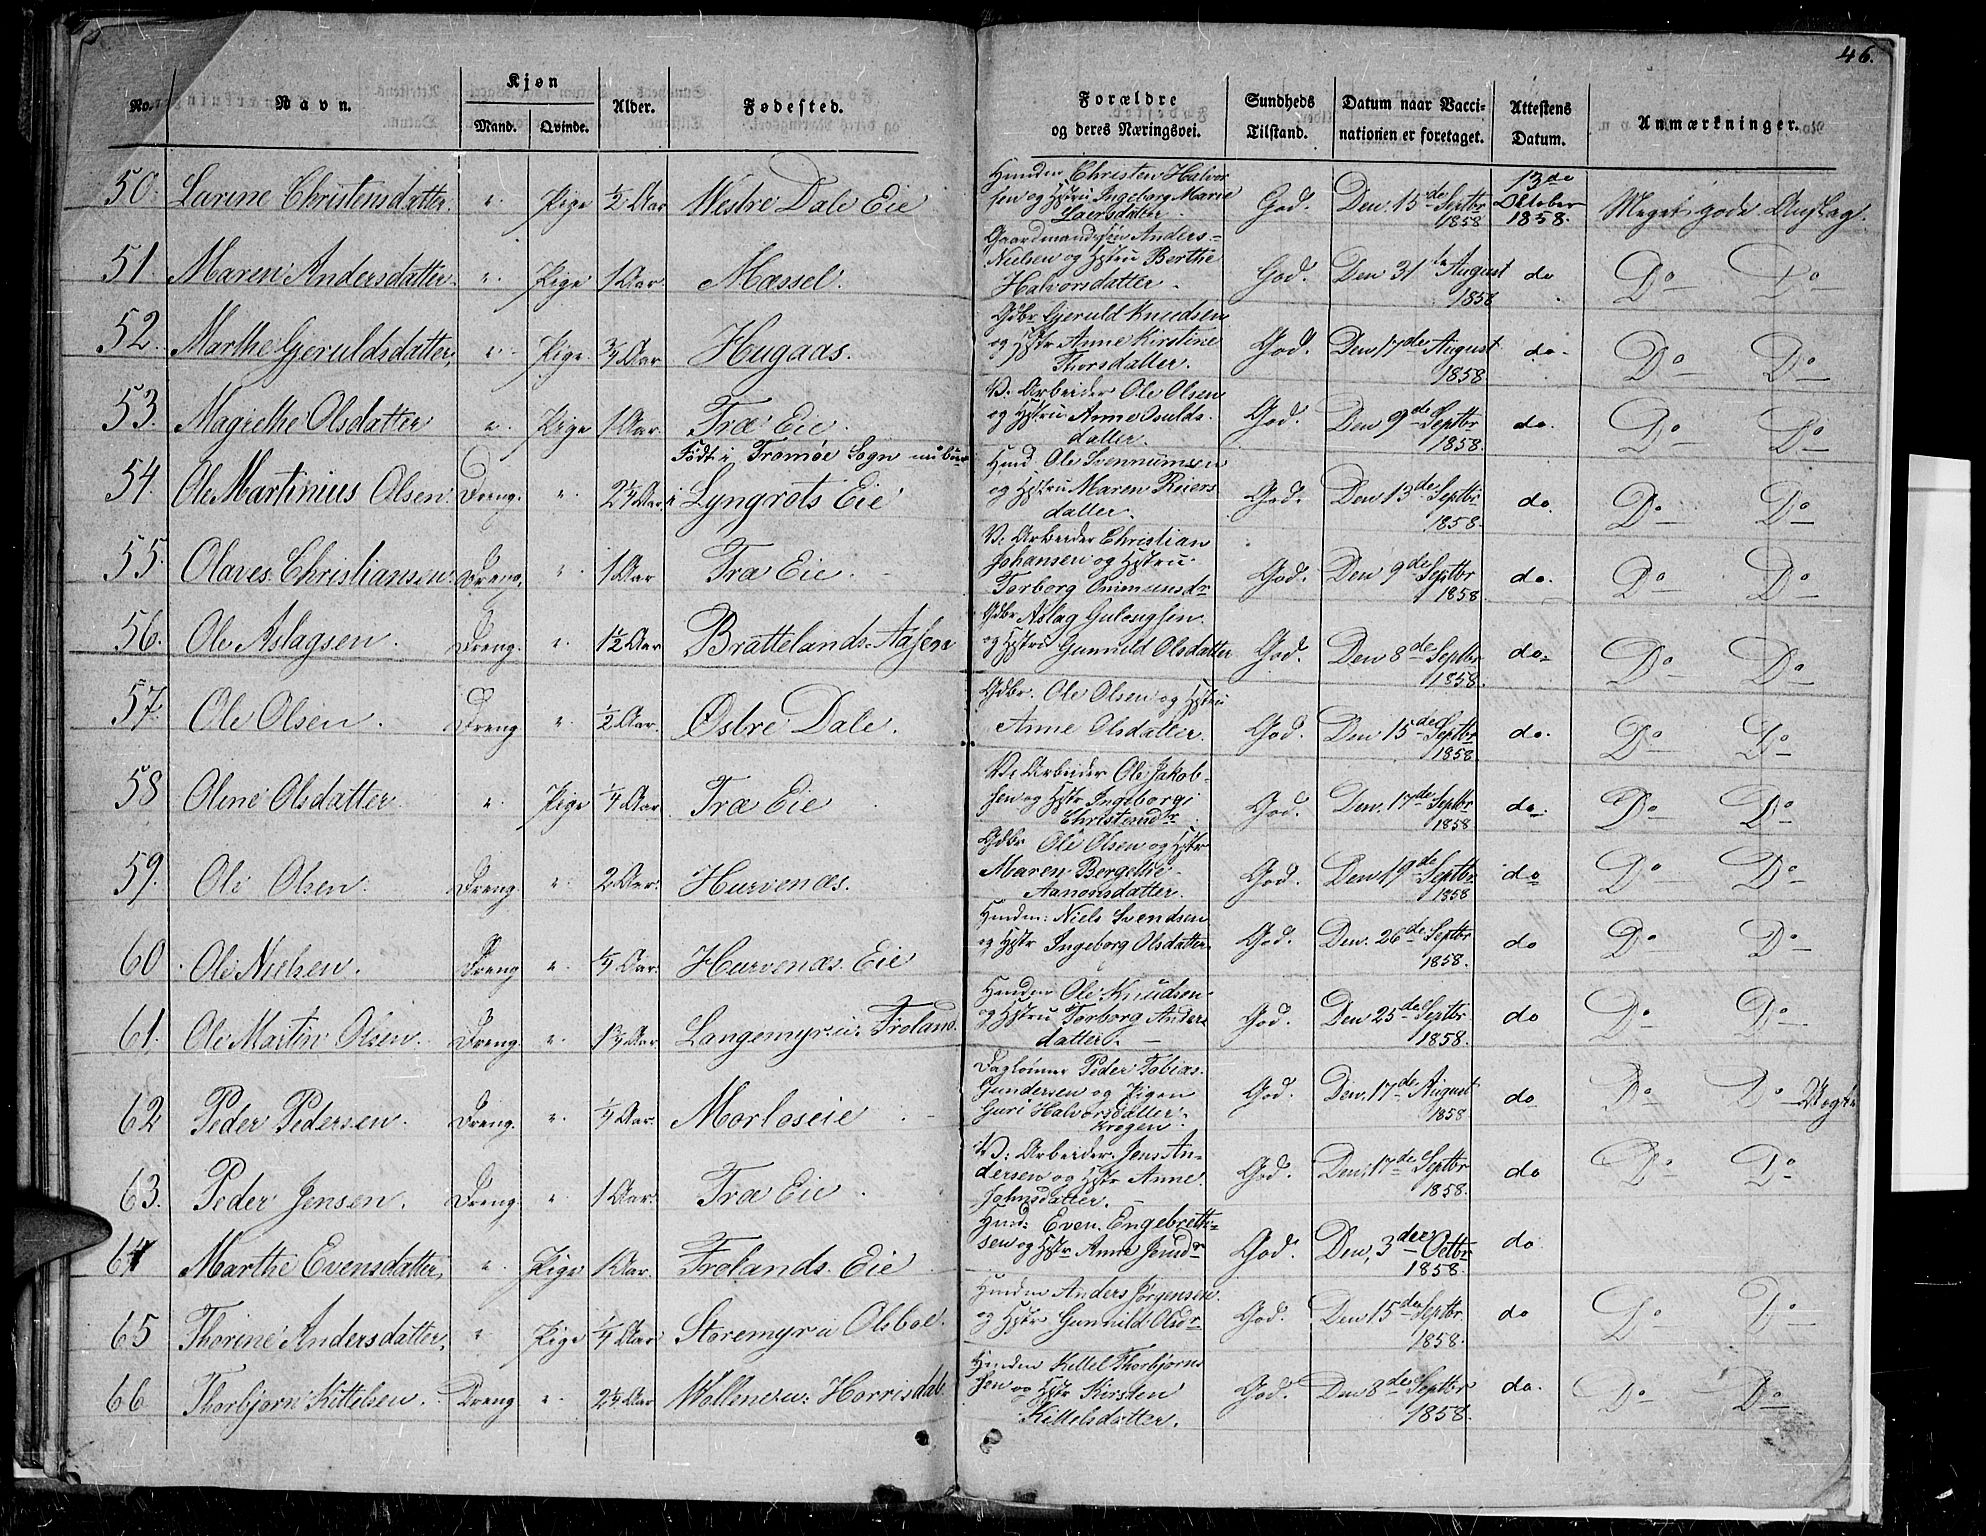 46.
No. Navn. Kjøn Mand. Qvinde. Alder. Fødested. Forældre og deres Næringsvei. Sundheds Tilstand. Datum naar Vaccinationen er foretaget. Attestens Datum. Anmærkninger.
50. Larine Christensdatter. " Pige ½ Aar Westre Dale Eie
Christen Halvor
sen og Hstru Ingeborg Marie
Laersdatter. God. Den 15de Septbr 1858 13de Oktober 1858. Meget gode Anslag.
51. Maren Andersdatter. " Pige 1 Aar Mæssel.
Gaardmandssøn Anders
Nielsen og Hstru Berthe
Halvorsdatter. God. Den 31te August 1858 do Do Do
52. Marthe Gjeruldsdatter, " Pige ¾ Aar Hugaas.
Gdbr. Gjeruld Knudsen
og Hstr Anne Kirstine
Thorsdatter. God. Den 17de August 1858 do Do Do
53. Magrethe Olsdatter " Pige 1 Aar Træ Eie.
V: Arbeider Ole Olsen
og Hstru Anne Osulds-
datter. God. Den 9de Septbr 1858. do. Do Do
Født i Tromøe Sogn
54. Ole Martinius Olsen Dreng. " 2¼ Aar i Lyngrots Eie
Ole Svennumsen
og Hstru Maren Reiers
datter. God. Den 13de Septbr 1858. do. Do Do
55. Olaves Christiansen. Dreng. " 1 Aar Træ Eie.
V: Arbeider Christian
Johansen og Hstru
Torborg Ommunsdr God. Den 9de Septbr 1858 do. Do Do
56. Ole Aslagsen. Dreng. " 1½ Aar Brattelands-Aasen
Gdbr Aslag Gulovsen
og Hstru Gunuld Olsdatter God. Den 8de Septbr 1858. do. Do Do
57. Ole Olsen. Dreng " ½ Aar. Østre Dale.
Gdbr. Ole Olsen og Hstru
Anne Olsdatter. God. Den 15de Septbr 1858 do. Do Do
58 Oline Olsdatter " Pige ¼ Aar Træ Eie
V: Arbeider Ole Jakob-
sen og Hstr Ingeborg
Christensdr God. Den. 17de Septbr 1858 do. Do Do
59. Ole Olsen. Dreng. " 2 Aar. Hurvenæs.
Gdbr Ole Olsen og Hstr
Maren Bergette
Aanonsdatter. God. Den 19de Septbr 1858 do Do Do
60. Ole Nielsen. Dreng " ¼ Aar. Hurvenæs. Eie
Niels Svendsen
og Hstr Ingeborg Olsdatter. God. Den. 26de Septbr 1858. do Do Do
61. Ole Martin Olsen. Dreng. " 1¾ Aar. Langemyr u: Froland.
Ole Knudsen
og Hstru Torborg Anders
datter. God. Den 25de Septbr 1858. do Do Do
62 Peder Pedersen. Dreng. " ¼ Aar. Morloseie
Daglønner Peder Tobias
Gundersen og Pigen
Guri Halvorsdatter
Krogen. God. Den. 17de August 1858 do Do Do
63. Peder Jensen. Dreng " 1 Aar. Træ Eie.
V: Arbeider. Jens An-
dersen og Hstr Anne
Johnsdatter. God. Den 17de Septbr 1858. do Do Do
64 Marthe Evensdatter, " Pige 1 Aar. Frolands. Eie
Even. Engebrett-
sen og Hstr Anne God. Den, 3die Octbr 1858. do
65 Thorine Andersdatter, " Pige ¼ Aar Storemyr u Olsboe.
Anders Jørgensen.
og Hstr Gunnild Olsdr God. Den 15de Septbr 1858. do Do Do
66 Thorbjørn Kittelsen. Dreng " 2¼ Aar u: Horrisdal.
Kittel Thorbjørns
sen og Hstr Kirsten
Kittelsdatter. God. Den 8de Septbr 1858. do. Do Do